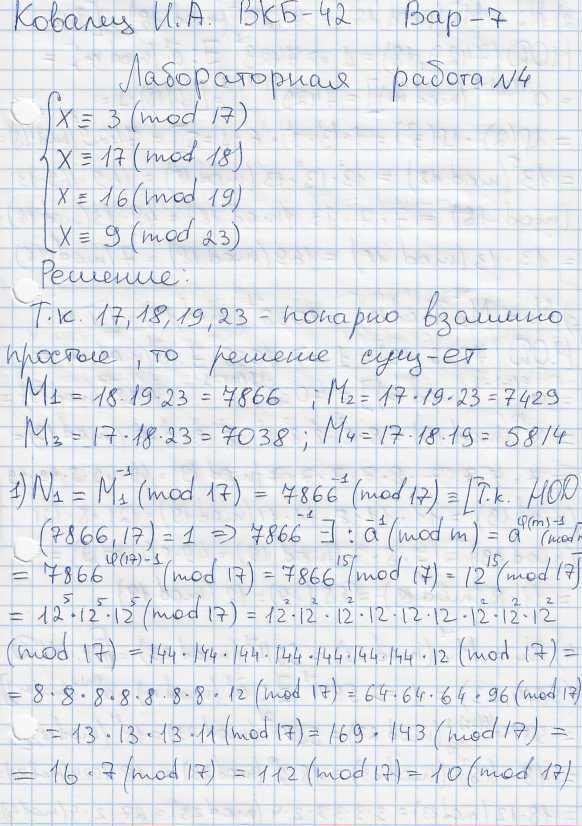 Ковалец И.А. ВКБ-42 Вар-7
Лабораторная работа N4
{ x ≡ 3 (mod 17)
x ≡ 17 (mod 18)
x ≡ 16 (mod 19)
x ≡ 9 (mod 23)
Решение:
Т.к. 17, 18, 19, 23 - попарно взаимно
простые, то решение сущ-ет
M₁ = 18·19·23 = 7866 ; M₂ = 17·19·23 = 7429
M₃ = 17·18·23 = 7038 ; M₄ = 17·18·19 = 5814
1) N₁ = M₁⁻¹ (mod 17) = 7866⁻¹ (mod 17) ≡ [Т.к. НОД
(7866, 17) = 1 ⇒ 7866⁻¹ ∃ : a⁻¹ (mod m) = a^φ(m)-1 (mod m
= 7866^φ(17)-1 (mod 17) = 7866¹⁵ (mod 17) = 12¹⁵ (mod 17)
= 12⁵·12⁵·12⁵ (mod 17) = 12²·12²·12²·12·12·12·12²·12²·12²
(mod 17) = 144·144·144·144·144·144·144·12 (mod 17) =
= 8·8·8·8·8·8·8·12 (mod 17) = 64·64·64·96 (mod 17)
= 13·13·13·11 (mod 17) = 169·143 (mod 17) =
= 16·7 (mod 17) = 112 (mod 17) = 10 (mod 17)